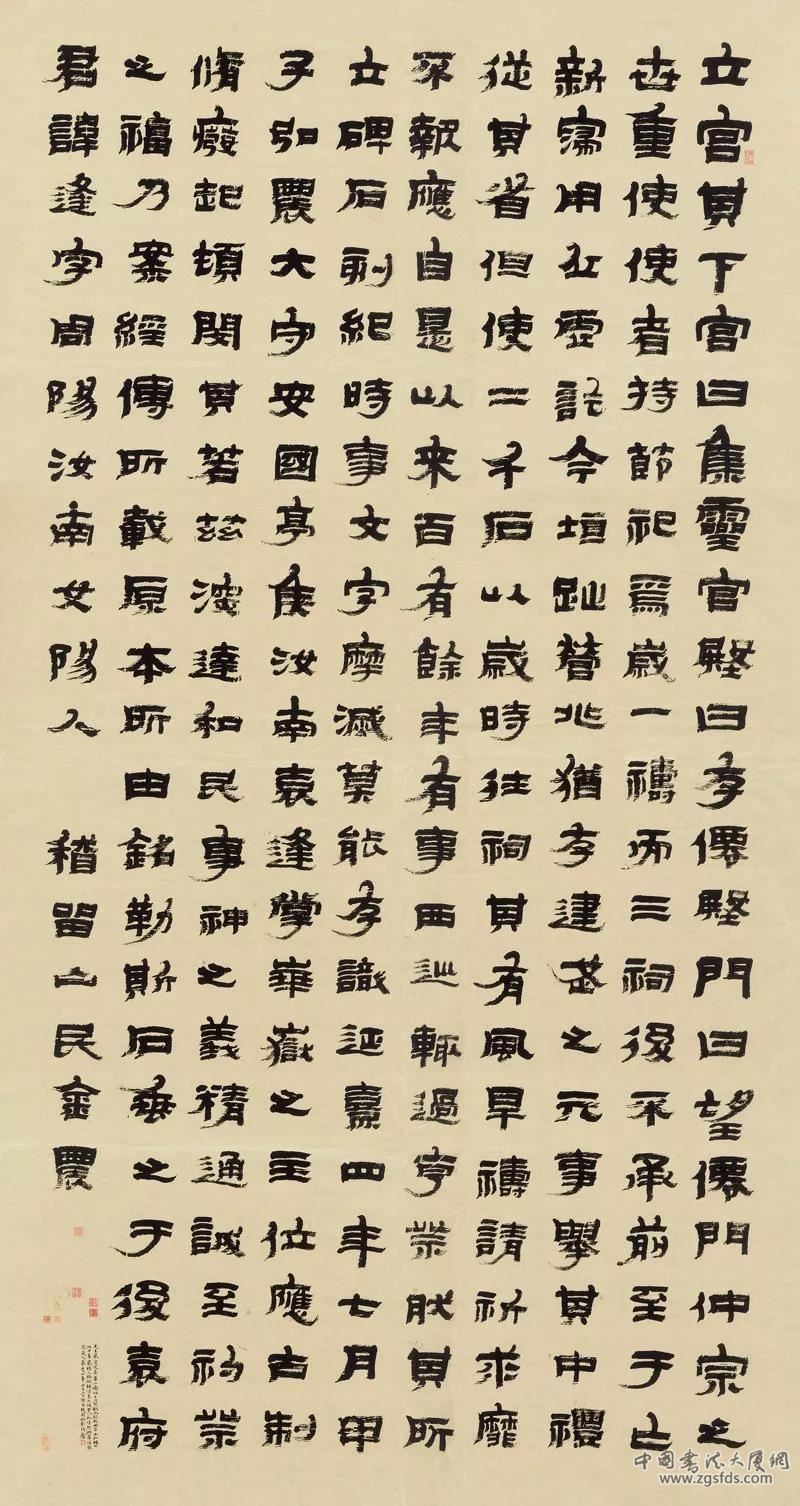 立宮其下宮曰集靈宮壂曰存僊壂門曰望僊門仲宗之
世重使使者持節祀焉歲一禱而三祠後不承前至于亡
新寖用丘虛訖今垣趾營兆猶存建武之元事舉其中禮
從其省但使二千石以歲時往祠其有風旱禱請祈求靡
不報應自是以來百有餘年有事西巡輒過亨祭然其所
立碑石刻紀時事文字摩滅莫能存識延熹四年七月甲
子弘農大守安國亭侯汝南袁逢掌華嶽之主位應古制
脩癈起頓閔其若茲深達和民事神之義精通誠至礿祭
之福乃案經傳所載原本所由銘勒斯石垂之于後袁府
君諱逢字周陽汝南女陽人 稽留山民金農
中國書法大厦網
www.zgsfds.com